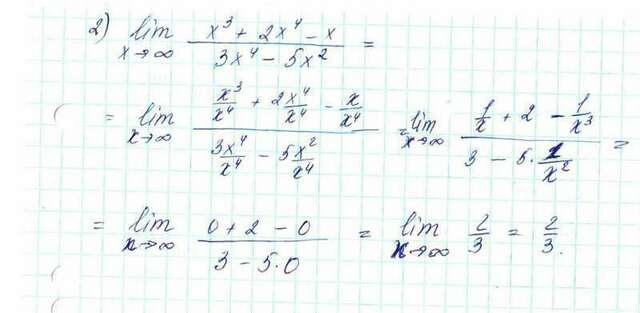 2) lim x→∞ (x³ + 2x⁴ − x)/(3x⁴ − 5x²) =
= lim x→∞ (x³/x⁴ + 2x⁴/x⁴ − x/x⁴)/(3x⁴/x⁴ − 5x²/x⁴) = lim x→∞ (1/x + 2 − 1/x³)/(3 − 5·1/x²) =
= lim x→∞ (0 + 2 − 0)/(3 − 5·0) = lim x→∞ 2/3 = 2/3.